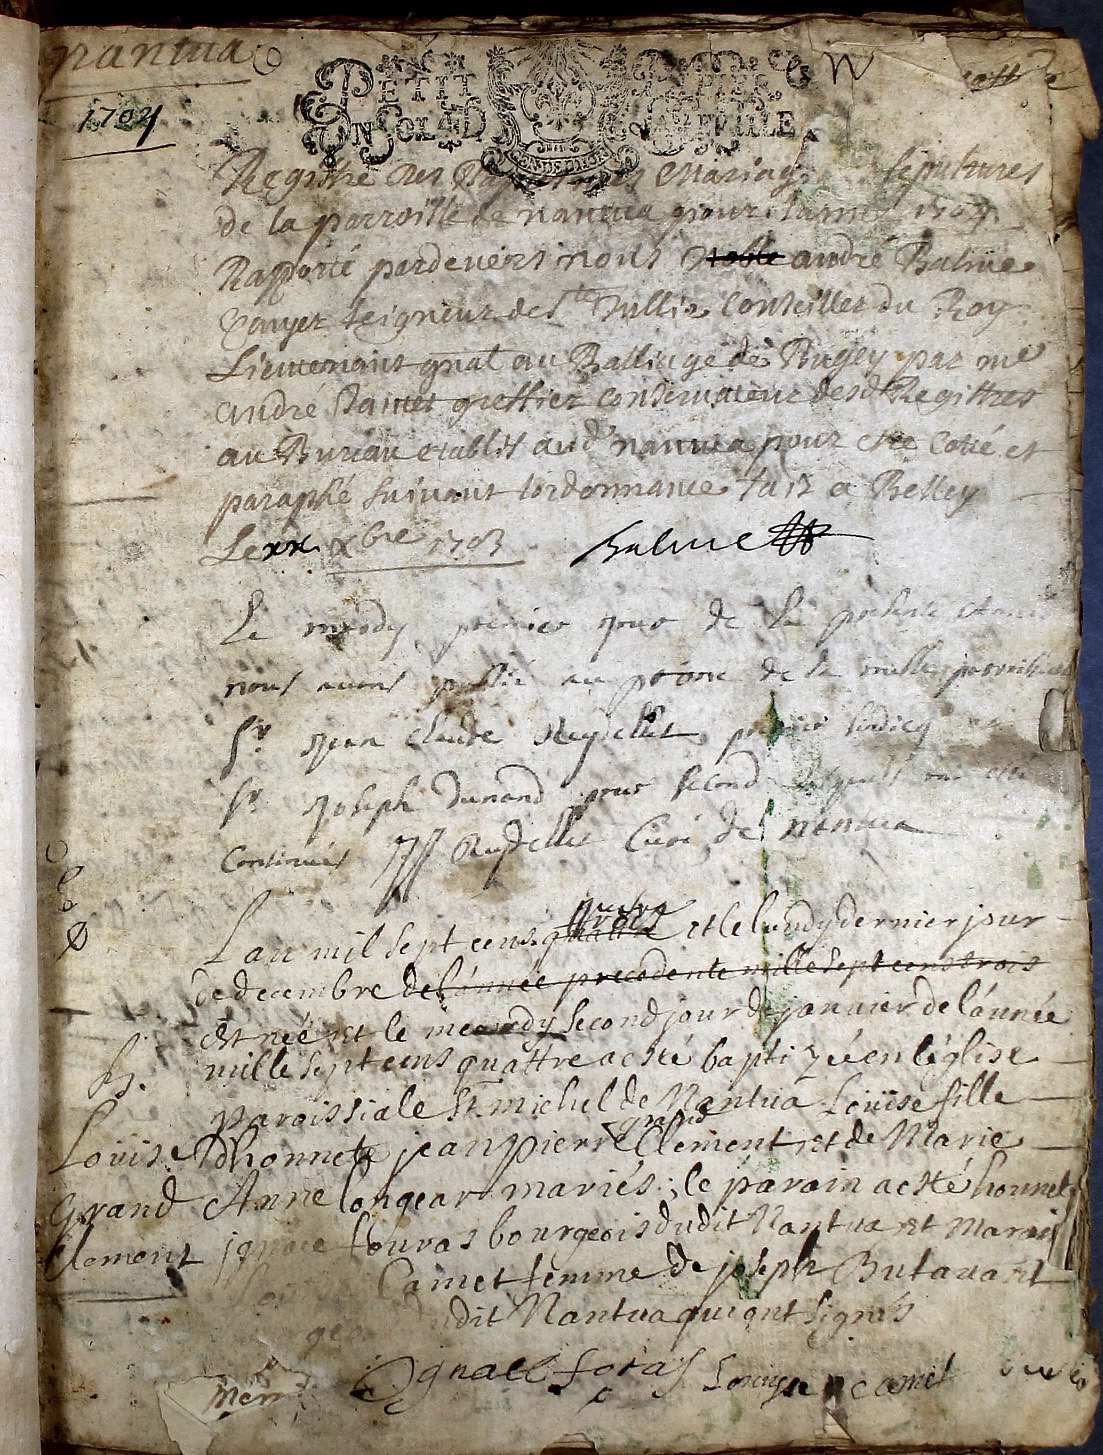 nantua
1704
PETIT PAPIER
Registre des Baptesmes Mariages sepultures
de la parroisse de nantua pour lannee 1704
Rapporté pardevers nous noble andré Balme
Escuyer seigneur de Ste Jullie Conseiller du Roy
Lieutenant gnal au Balliage de Bugey par me
andré greffier conservateur desd Registres
au Bureau etablit aud nantua pour estre Coté et
paraphé suivant lordonnance fait a Belley
Le xx xbre 1703 Balme
Le mardy premier jour de la presente Année
nous avons publié au prone de la messe parroissiale
Sr Jean Claude Reydellet premier sindicq
Sr Joseph Durand pour second lesquels ont esté
Continués Reydellet Curé de nantua
L'an mil sept cens quattre trois et le lundy dernier jour
de decembre de l'année precedente mille sept cens trois
est née et le mecredy second jour de janvier de l'année
mille sept cens quattre a esté baptizée en l'église
B.
paroissiale St. michel de Nantua Louise fille
grand
Louise d'honnete jean pierre Clement et de Marie
grand Anne longear mariés; le parain a esté honnet
Clement ignace fouras bourgeois dudit Nantua et
Camet femme de joseph Butavant
dudit Nantua qui ont signés
Ignace foras Louise camet